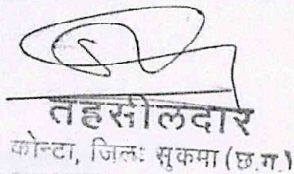 तहसीलदार
कोन्टा, जिलाः सुकमा (छ.ग.)